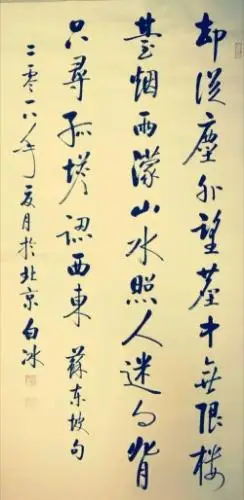 却從塵外望塵中無限樓
臺烟雨濛山水照人迷向背
只尋孤塔認西東 蘇東坡句
二零一八年夏月於北京白冰